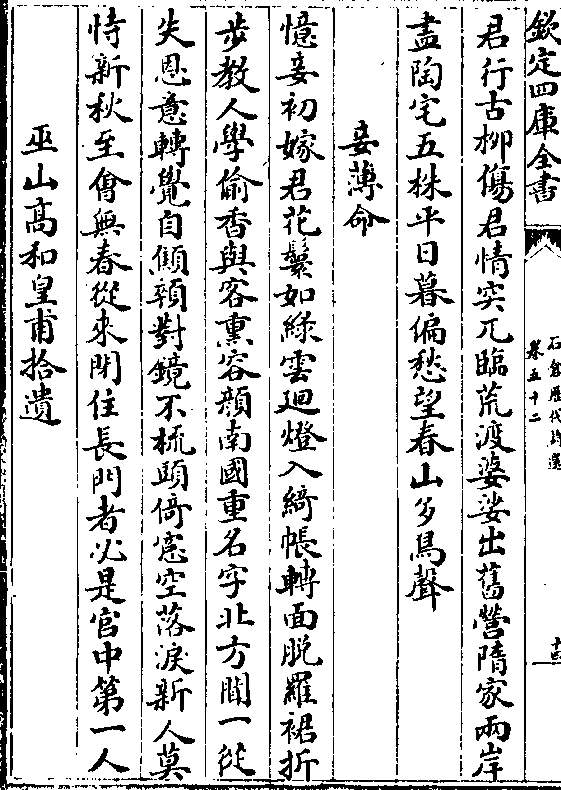 欽定四庫全書
石倉歷代詩選
卷五十二
十三
君行古柳傷君情突兀臨荒渡婆娑出舊營隋家兩岸
盡陶宅五株平日暮偏愁望春山多鳥聲
妾薄命
憶妾初嫁君花鬟如綠雲廻燈入綺帳轉面脫羅裙折
步教人學偷香與客熏容顏南國重名字北方聞一從
失恩意轉覺自顦顇對鏡不梳頭倚窓空落淚新人莫
恃新秋至㑹無春從來閉住長門者必是宫中第一人
巫山高和皇甫拾遺